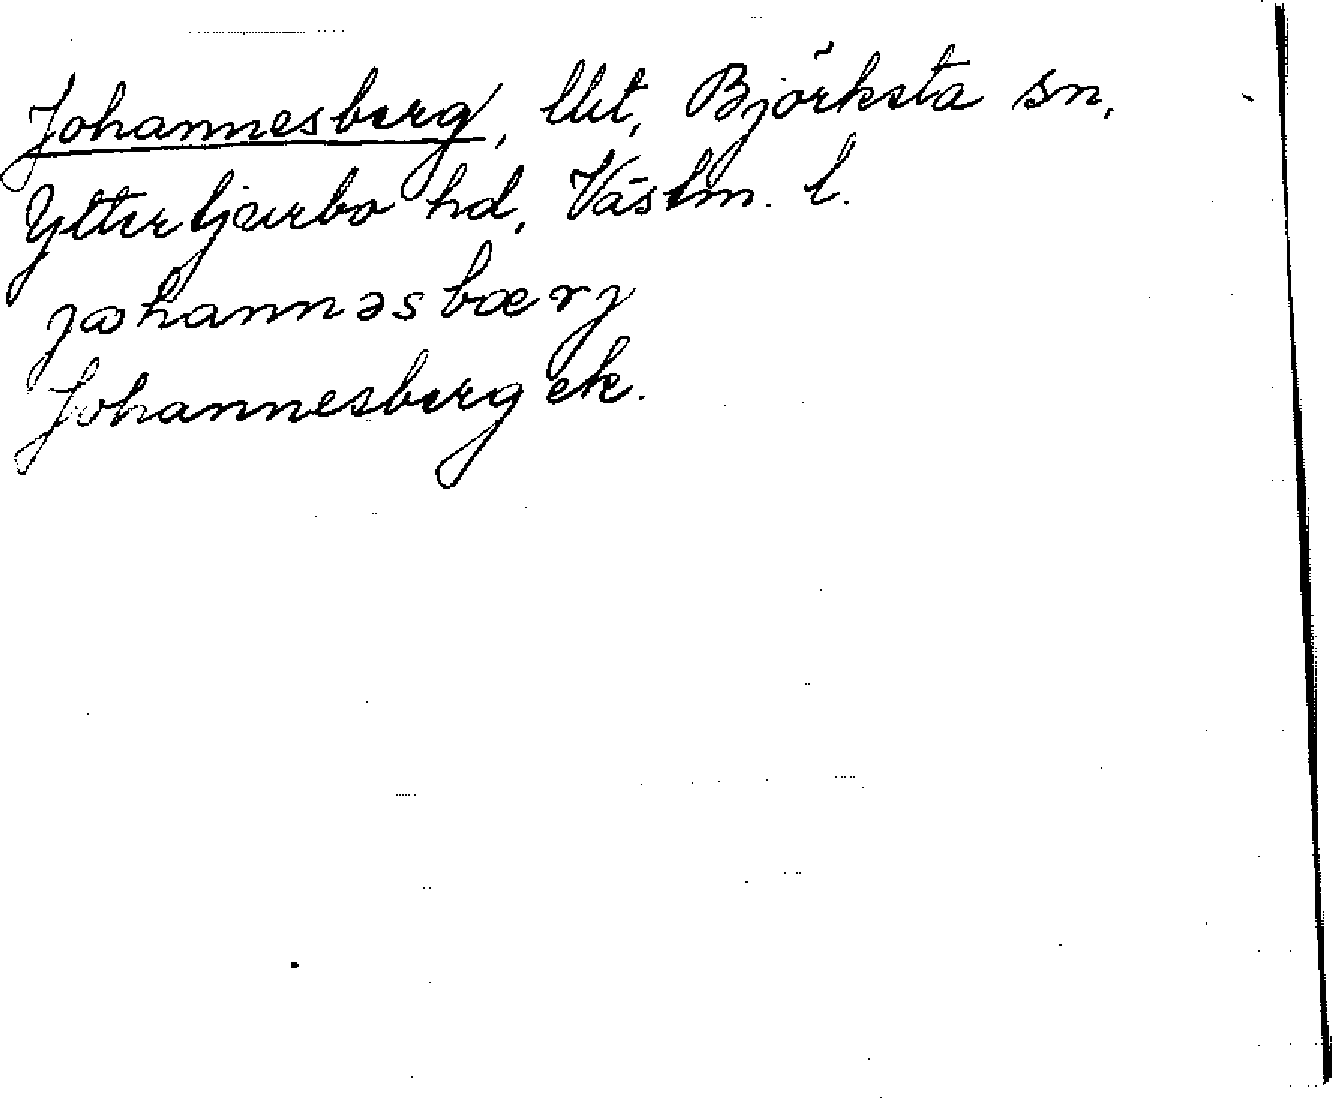 Johannesberg, lht, Björksta sn,
Yttertjurbo hd, Västm. l.
johannəsbærj
Johannesberg ek.